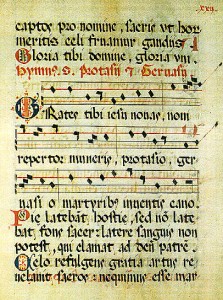 .xxii.
captos pro nomine, sacris ut hor
meritis celi fruamur gaudiis
Gloria tibi domine, gloria uni
Hymnus. s. Protasii & Gervasii
Grates tibi iesu novas, novi
repertor muneris, protasio, ger
vasi o martyribus inventis cano.
Pie latebāt hostie, sed nō late
bat, fons sacer: latere sanguis non
potest, qui clamat ad deū patrē.
Celo refulgens gratia artus re
velavit sacros: nequimus esse mar